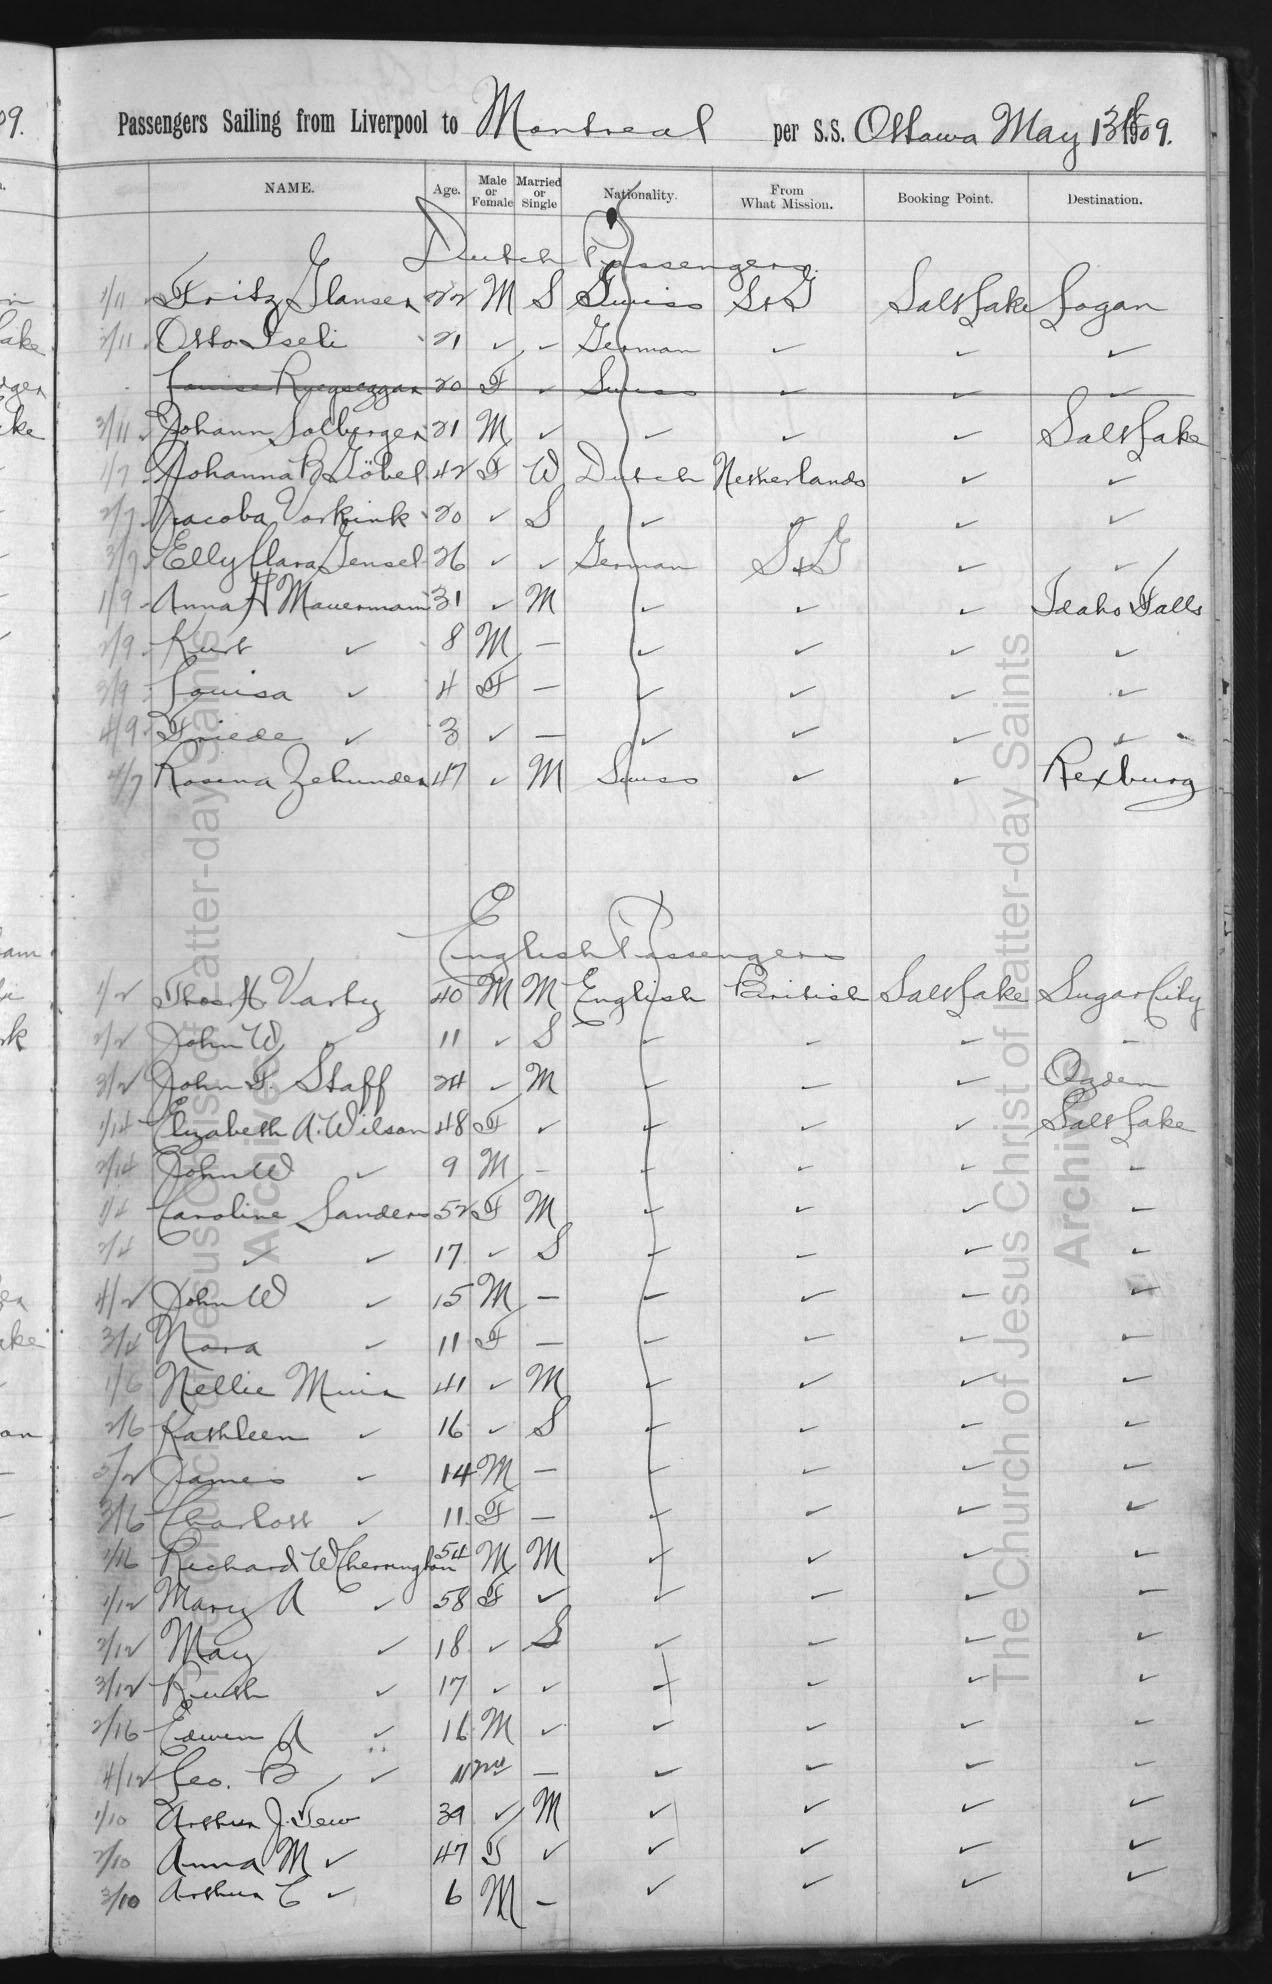 Passengers Sailing from Liverpool to Montreal per S.S. Ottawa May 13th 1909.
NAME. Age. Male or Female Married or Single Nationality. From What Mission. Booking Point. Destination.
Dutch Passengers.
1/11 Fritz Glauser 22 M S Swiss S+G Salt Lake Logan
2/11 Otto Iseli 21 ✓ ✓ German ✓ ✓ ✓
Louise Ryegsegger 20 F ✓ Swiss ✓ ✓ ✓
3/11 Johann Solberger 21 M ✓ ✓ ✓ ✓ Salt Lake
1/7 Johanna B Göbel 42 F W Dutch Netherlands ✓ ✓
2/7 Jacoba Vorkink 20 ✓ S ✓ ✓ ✓ ✓
3/7 Elly Clara Gensel 26 ✓ ✓ German S+G ✓ ✓
1/9 Anna H Mauermann 31 ✓ M ✓ ✓ ✓ Idaho Falls
2/9 Kurt ✓ 8 M — ✓ ✓ ✓ ✓
3/9 Louisa ✓ 4 F — ✓ ✓ ✓ ✓
4/9 Friede ✓ 3 ✓ — ✓ ✓ ✓ ✓
4/7 Rosina Zehunder 47 ✓ M Swiss ✓ ✓ Rexburg
English Passengers
1/2 Thos H Varley 40 M M English British Salt Lake Sugar City
2/2 John W ✓ 11 ✓ S ✓ ✓ ✓ ✓
3/2 John F. Staff 24 ✓ M ✓ ✓ ✓ Ogden
1/14 Elizabeth A. Wilson 48 F ✓ ✓ ✓ ✓ Salt Lake
2/14 John W ✓ 9 M — ✓ ✓ ✓ ✓
1/4 Caroline Sanders 52 F M ✓ ✓ ✓ ✓
2/4 ✓ ✓ 17 ✓ S ✓ ✓ ✓ ✓
4/2 John W ✓ 15 M — ✓ ✓ ✓ ✓
3/4 Nora ✓ 11 F — ✓ ✓ ✓ ✓
1/6 Nellie Muir 41 ✓ M ✓ ✓ ✓ ✓
2/6 Kathleen ✓ 16 ✓ S ✓ ✓ ✓ ✓
5/2 James ✓ 14 M — ✓ ✓ ✓ ✓
3/6 Charlott ✓ 11 F — ✓ ✓ ✓ ✓
1/16 Richard W Cherrington 54 M M ✓ ✓ ✓ ✓
1/12 Mary A ✓ 58 F ✓ ✓ ✓ ✓ ✓
2/12 May ✓ 18 ✓ S ✓ ✓ ✓ ✓
3/12 Ruth ✓ 17 ✓ ✓ ✓ ✓ ✓ ✓
2/16 Edwin A ✓ 16 M ✓ ✓ ✓ ✓ ✓
4/12 Geo. B ✓ — ✓ ✓ ✓ ✓
1/10 Arthur J. Tew 39 ✓ M ✓ ✓ ✓ ✓
2/10 Anna M ✓ 47 F ✓ ✓ ✓ ✓ ✓
3/10 Arthur C ✓ 6 M — ✓ ✓ ✓ ✓
The Church of Jesus Christ of Latter-day Saints
Archives
The Church of Jesus Christ of Latter-day Saints
Archives